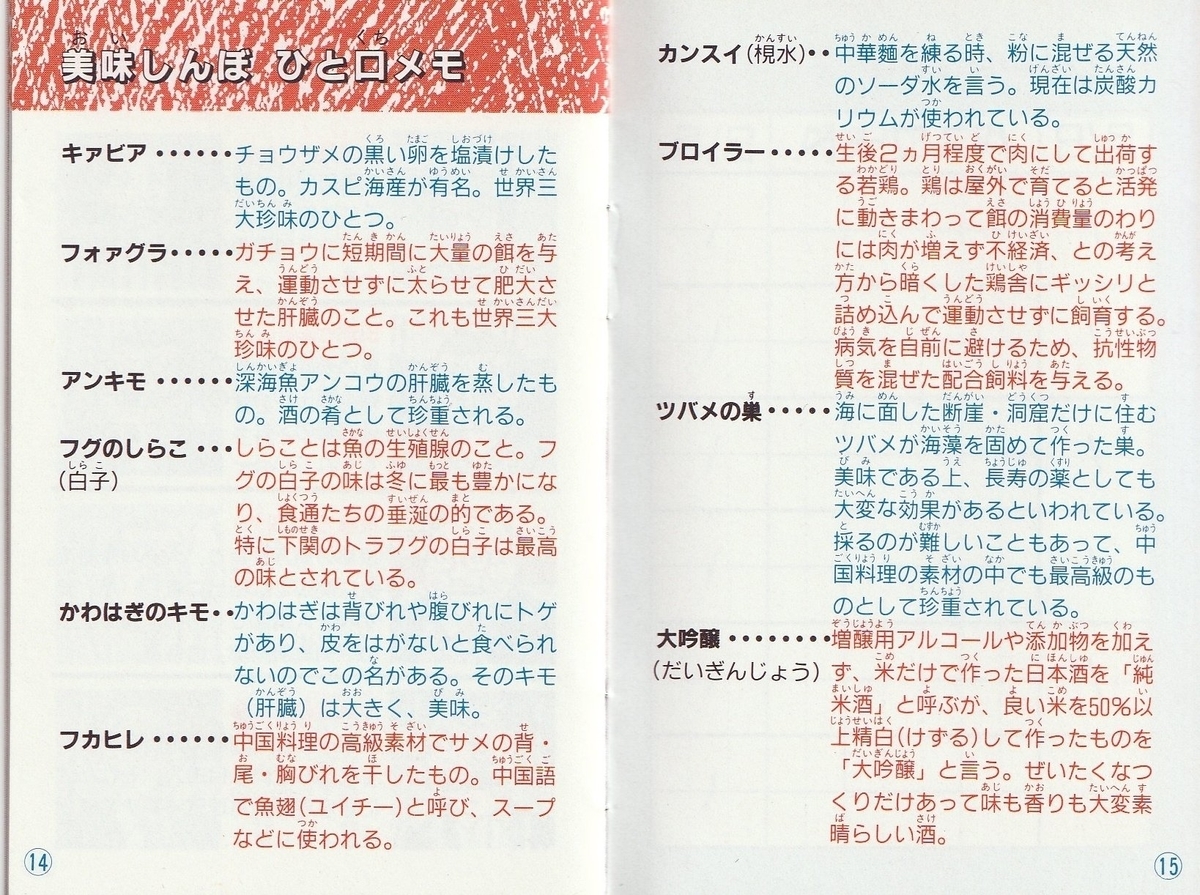 美味しんぼ ひと口メモ
キァビア・・・・・・チョウザメの黒い卵を塩漬けした
もの。カスピ海産が有名。世界三
大珍味のひとつ。
フォァグラ・・・・・ガチョウに短期間に大量の餌を与
え、運動させずに太らせて肥大さ
せた肝臓のこと。これも世界三大
珍味のひとつ。
アンキモ・・・・・・深海魚アンコウの肝臓を蒸したも
の。酒の肴として珍重される。
フグのしらこ・・・しらことは魚の生殖腺のこと。フ
(白子) グの白子の味は冬に最も豊かにな
り、食通たちの垂涎の的である。
特に下関のトラフグの白子は最高
の味とされている。
かわはぎのキモ・・かわはぎは背びれや腹びれにトゲ
があり、皮をはがないと食べられ
ないのでこの名がある。そのキモ
(肝臓)は大きく、美味。
フカヒレ・・・・・・中国料理の高級素材でサメの背・
尾・胸びれを干したもの。中国語
で魚翅(ユイチー)と呼び、スープ
などに使われる。
14
カンスイ(梘水)・・中華麵を練る時、粉に混ぜる天然
のソーダ水を言う。現在は炭酸カ
リウムが使われている。
ブロイラー・・・・・生後2ヵ月程度で肉にして出荷す
る若鶏。鶏は屋外で育てると活発
に動きまわって餌の消費量のわり
には肉が増えず不経済、との考え
方から暗くした鶏舎にギッシリと
詰め込んで運動させずに飼育する。
病気を自前に避けるため、抗性物
質を混ぜた配合飼料を与える。
ツバメの巣・・・・・海に面した断崖・洞窟だけに住む
ツバメが海藻を固めて作った巣。
美味である上、長寿の薬としても
大変な効果があるといわれている。
採るのが難しいこともあって、中
国料理の素材の中でも最高級のも
のとして珍重されている。
大吟醸・・・・・・・・増醸用アルコールや添加物を加え
(だいぎんじょう) ず、米だけで作った日本酒を「純
米酒」と呼ぶが、良い米を50%以
上精白(けずる)して作ったものを
「大吟醸」と言う。ぜいたくなつ
くりだけあって味も香りも大変素
晴らしい酒。
15